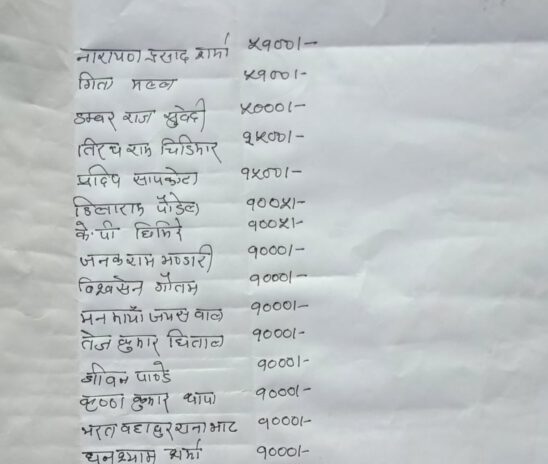 नारायण प्रसाद शर्मा ५१००।-
गिता मल्ल ५१००।-
डम्बर राज सुवेदी ५०००।-
तिरथ राम चिडिमार १५००।-
प्रदिप सापकोटा १५००।-
डिलाराम पौडेल १००५।-
के. पी घिमिरे १००५।-
जनकराम भण्डारी १०००।-
विश्वसेन गौतम १०००।-
मन माया जयसवाल १०००।-
तेज कुमार धिताल १०००।-
जीवन पाण्डे १०००।-
कृष्ण कुमार थापा १०००।-
भरत बहादुर रानाभाट १०००।-
घनश्याम शर्मा १०००।-